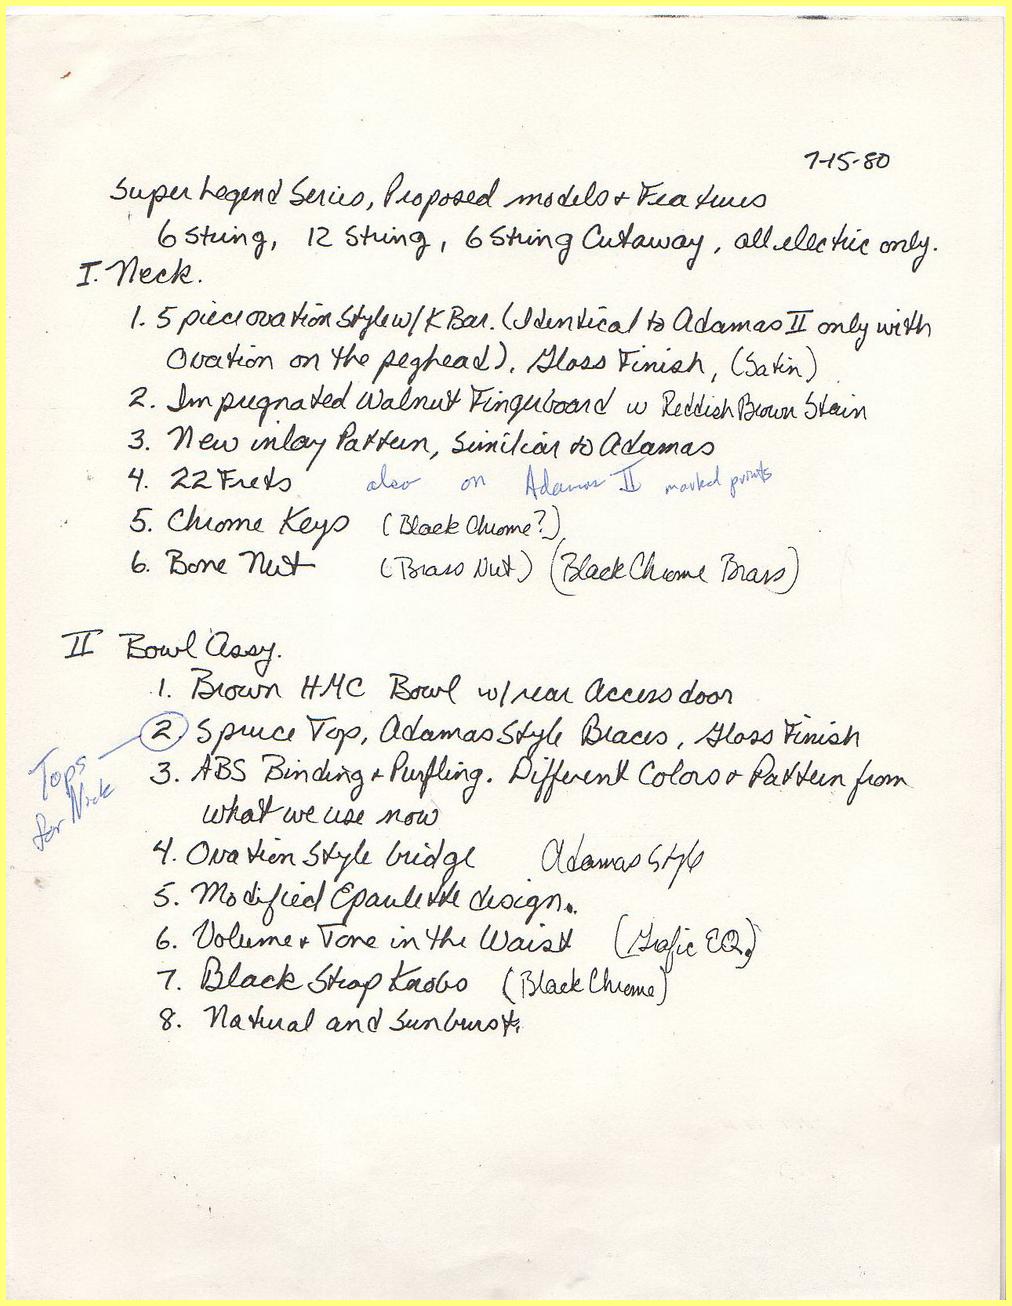 7-15-80
Super Legend Series, Proposed models + Features
6 String, 12 String, 6 String Cutaway, all electric only.
I. Neck.
1. 5 piece ovation Style w/ K Bar. (Identical to Adamas II only with
Ovation on the peghead). Gloss Finish, (Satin)
2. Impregnated Walnut Fingerboard w Reddish Brown Stain
3. New inlay Pattern, Similiar to Adamas
4. 22 Frets also on Adamas II marked prints
5. Chrome Keys (Black Chrome?)
6. Bone Nut (Brass Nut) (Black Chrome Brass)
II Bowl Assy.
1. Brown HMC Bowl w/rear Access door
2. Spruce Top, Adamas Style Braces, Gloss Finish
Tops
for Nick
3. ABS Binding + Purfling. Different Colors + Pattern from
what we use now
4. Ovation Style bridge Adamas Style
5. Modified Epaulette design.
6. Volume + Tone in the Waist (Grafic EQ.)
7. Black Strap Knobs (Black Chrome)
8. Natural and Sunburst.